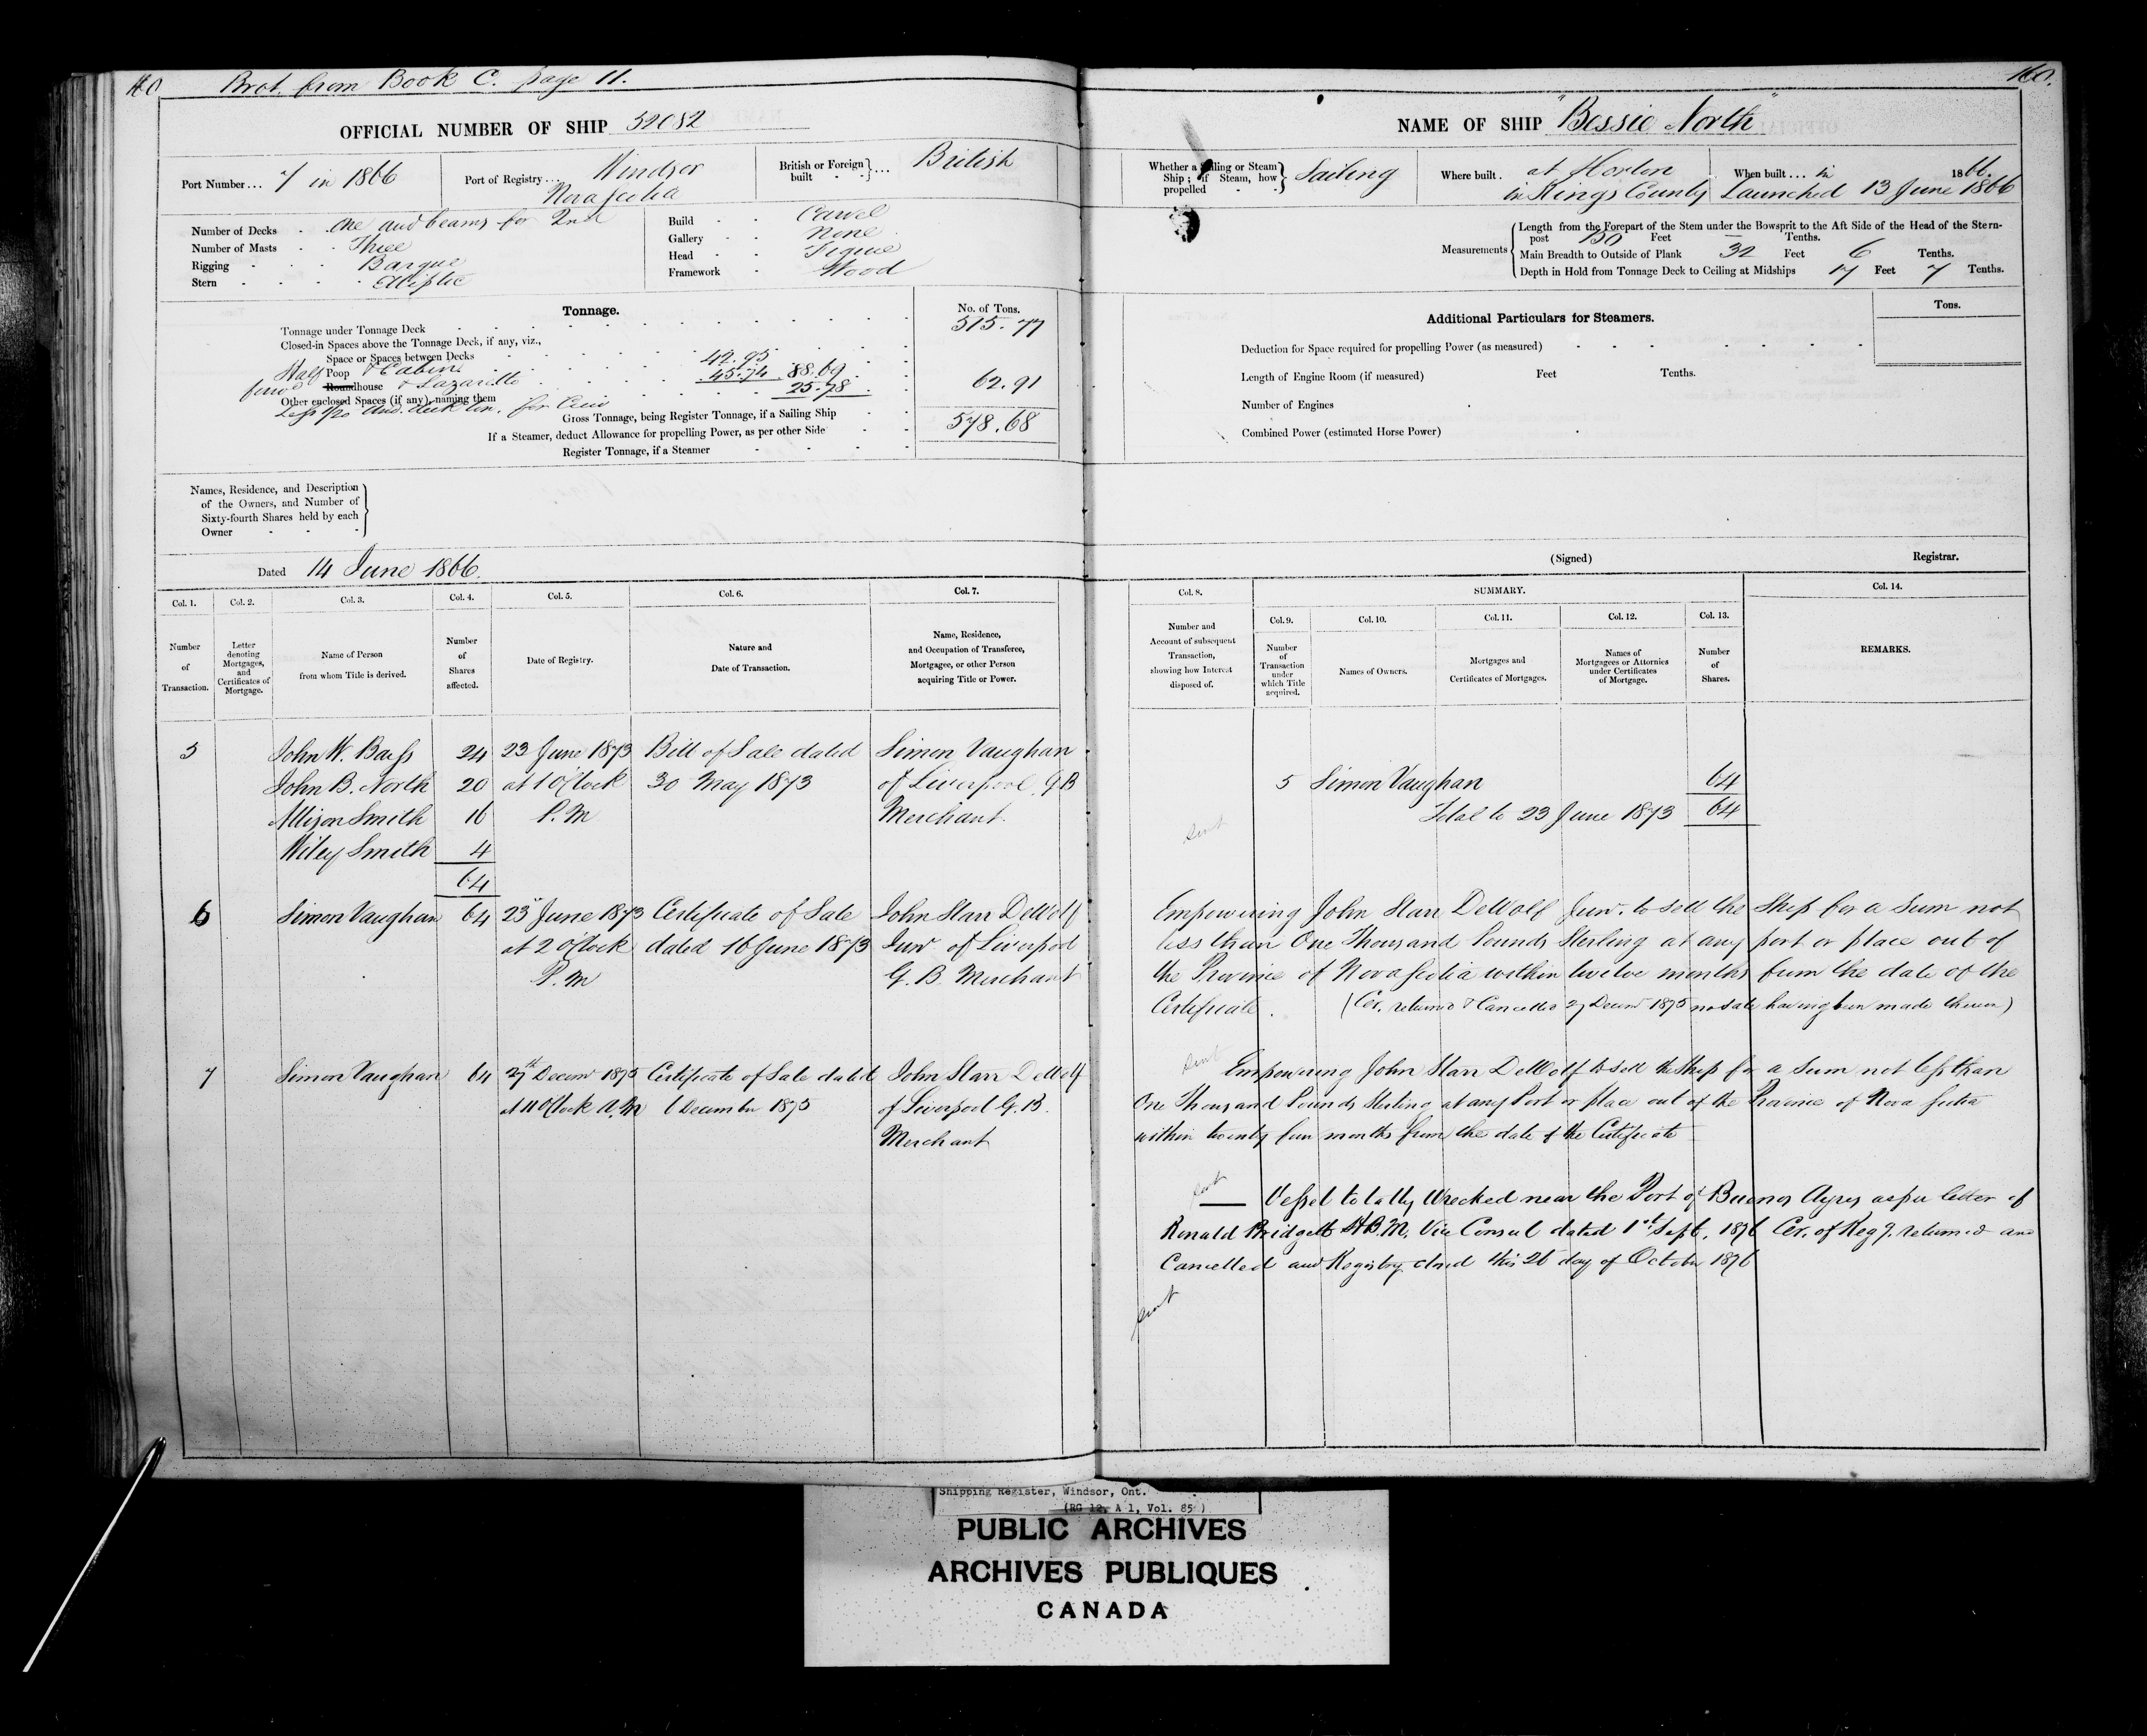 160 Brot. from Book C. page 11.
OFFICIAL NUMBER OF SHIP 52082
Port Number... 7 in 1866
Port of Registry... Windsor
Nova Scotia
British or Foreign built - - } ... British
Number of Decks - - One and beams for 2nd
Number of Masts - - Three
Rigging - - - Barque
Stern - - - - Elliptic
Build - - Carvel
Gallery - - None
Head - - Figure
Framework - Wood
Tonnage.
No. of Tons.
Tonnage under Tonnage Deck 515.77
Closed-in Spaces above the Tonnage Deck, if any, viz.,
Space or Spaces between Decks
Half Poop & Cabin 42.95
Roundhouse & Lazaretto 45.74 88.69
Other enclosed Spaces (if any), naming them 25.78 62.91
Less 1/20 deck ton. for Crew
Gross Tonnage, being Register Tonnage, if a Sailing Ship 578.68
If a Steamer, deduct Allowance for propelling Power, as per other Side
Register Tonnage, if a Steamer
Names, Residence, and Description
of the Owners, and Number of
Sixty-fourth Shares held by each
Owner - - -
Dated 14 June 1866.
Col. 1. Col. 2. Col. 3. Col. 4. Col. 5. Col. 6. Col. 7.
Number of Transaction.
Letter denoting Mortgages, and Certificates of Mortgage.
Name of Person from whom Title is derived.
Number of Shares affected.
Date of Registry.
Nature and Date of Transaction.
Name, Residence, and Occupation of Transferee, Mortgagee, or other Person acquiring Title or Power.
5 John W. Barss 24 23 June 1873 Bill of Sale dated Simon Vaughan
John B. North 20 at 1 O'Clock 30 May 1873 of Liverpool G B
Allison Smith 16 P.M Merchant.
Wiley Smith 4
64
6 Simon Vaughan 64 23 June 1873 Certificate of Sale John Starr DeWolf
at 2 O'Clock dated 16 June 1873 Junr of Liverpool
P.M G.B. Merchant
7 Simon Vaughan 64 27th Decemr 1875 Certificate of Sale dated John Starr DeWolf
at 11 O'Clock A.M 6 December 1875 of Liverpool G.B.
Merchant
160.
NAME OF SHIP "Bessie North"
Whether a Sailing or Steam Ship; if Steam, how propelled - - } Sailing
Where built. at Horton
in Kings County
When built ... in 1866.
Launched 13 June 1866
Measurements
Length from the Forepart of the Stem under the Bowsprit to the Aft Side of the Head of the Stern-
post 150 Feet — Tenths.
Main Breadth to Outside of Plank 32 Feet 6 Tenths.
Depth in Hold from Tonnage Deck to Ceiling at Midships 17 Feet 7 Tenths.
Additional Particulars for Steamers.
Tons.
Deduction for Space required for propelling Power (as measured)
Length of Engine Room (if measured) Feet Tenths.
Number of Engines
Combined Power (estimated Horse Power)
(Signed) Registrar.
Col. 8. SUMMARY. Col. 14.
Col. 9. Col. 10. Col. 11. Col. 12. Col. 13.
Number and Account of subsequent Transaction, showing how Interest disposed of.
Number of Transaction under which Title acquired.
Names of Owners.
Mortgages and Certificates of Mortgages.
Names of Mortgagees or Attornies under Certificates of Mortgage.
Number of Shares.
REMARKS.
5 Simon Vaughan 64
Total to 23 June 1873 64
sent
Empowering John Starr DeWolf Junr. to sell the Ship for a Sum not
less than One Thousand Pounds Sterling at any port or place out of
the Province of Nova Scotia within twelve months from the date of the
Certificate. (Cer. returned & Cancelled 27 Decemr 1875 no sale having been made therein)
sent
Empowering John Starr DeWolf to sell the Ship for a Sum not less than
One Thousand Pounds Sterling at any Port or place out of the Province of Nova Scotia
within twenty four months from the date of the Certificate
sent
— Vessel totally Wrecked near the Port of Buenos Ayres as per letter of
Ronald Bridgett H.B.M. Vice Consul dated 1st Sept. 1876 Cer. of Regy. returned and
Cancelled and Registry closed this 26 day of October 1876
sent
Shipping Register, Windsor, Ont.
(RG 12, A 1, Vol. 85)
PUBLIC ARCHIVES
ARCHIVES PUBLIQUES
CANADA